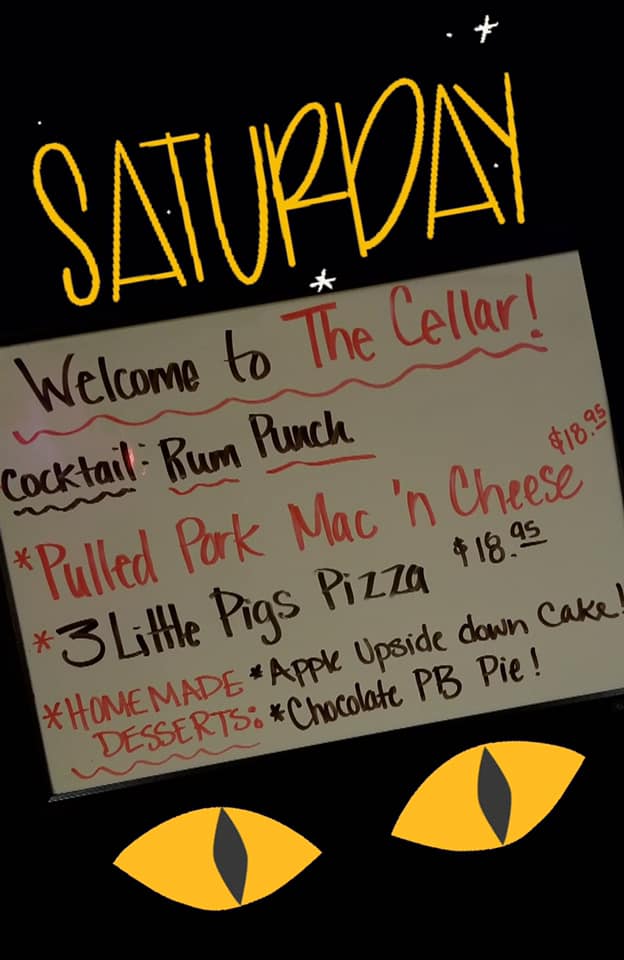 SATURDAY
Welcome to The Cellar!
Cocktail: Rum Punch
*Pulled Pork Mac 'n Cheese $18.95
*3 Little Pigs Pizza $18.95
*HOMEMADE *Apple Upside down Cake!
DESSERTS: *Chocolate PB Pie!